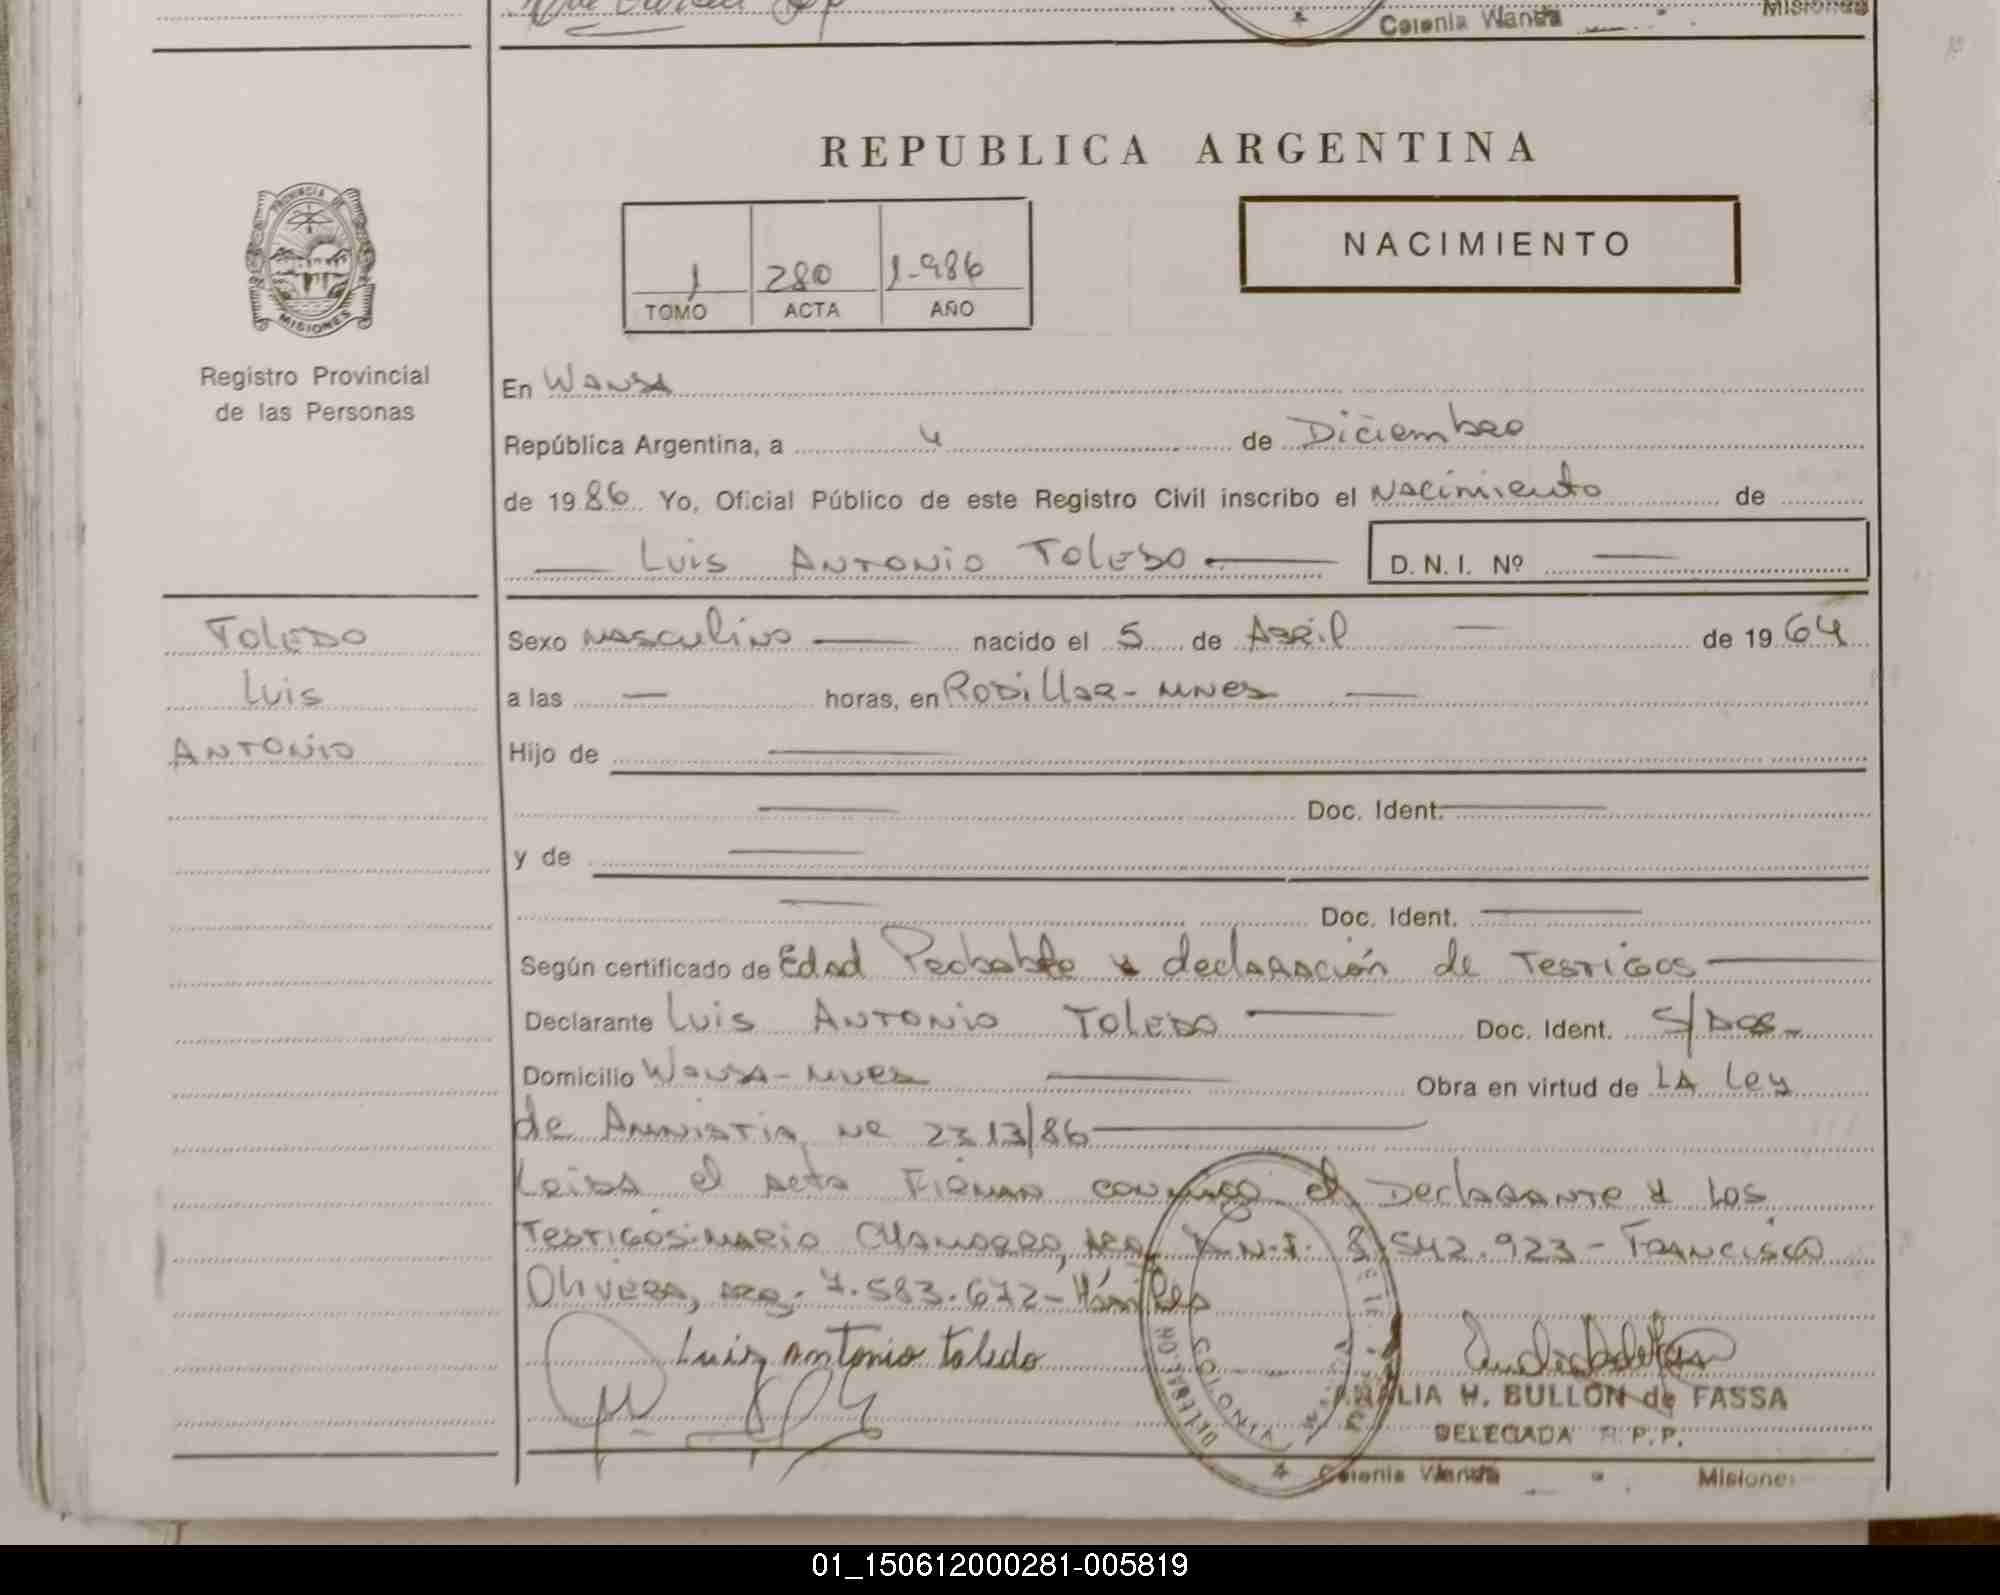 Colonia Wanda Misiones
REPUBLICA ARGENTINA
PROVINCIA DE
MISIONES
1 280 1-986
TOMO ACTA AÑO
NACIMIENTO
Registro Provincial
de las Personas
En Wanda
República Argentina, a 4 de Diciembre
de 1986 Yo, Oficial Público de este Registro Civil inscribo el Nacimiento de
Luis Antonio Toledo D. N. I. Nº
Toledo
Luis
Antonio
Sexo masculino nacido el 5 de Abril de 1964
a las horas, en Rodillar - Mnes
Hijo de
Doc. Ident.
y de
Doc. Ident.
Según certificado de Edad Probable y declaración de Testigos
Declarante Luis Antonio Toledo Doc. Ident. S/Doc.
Domicilio Wanda - Mnes Obra en virtud de LA Ley
de Amnistia Nº 2313/86
Leida el acta Firman conmigo el Declarante y Los
Testigos: Mario Chamorro, Arg. D.N.I. 8.542.923 - Francisco
Olivera, arg. 7.583.672 - Hábiles
Luis antonio toledo
ANALIA H. BULLON de FASSA
DELEGADA R.P.P.
Colonia Wanda Misiones
01_150612000281-005819